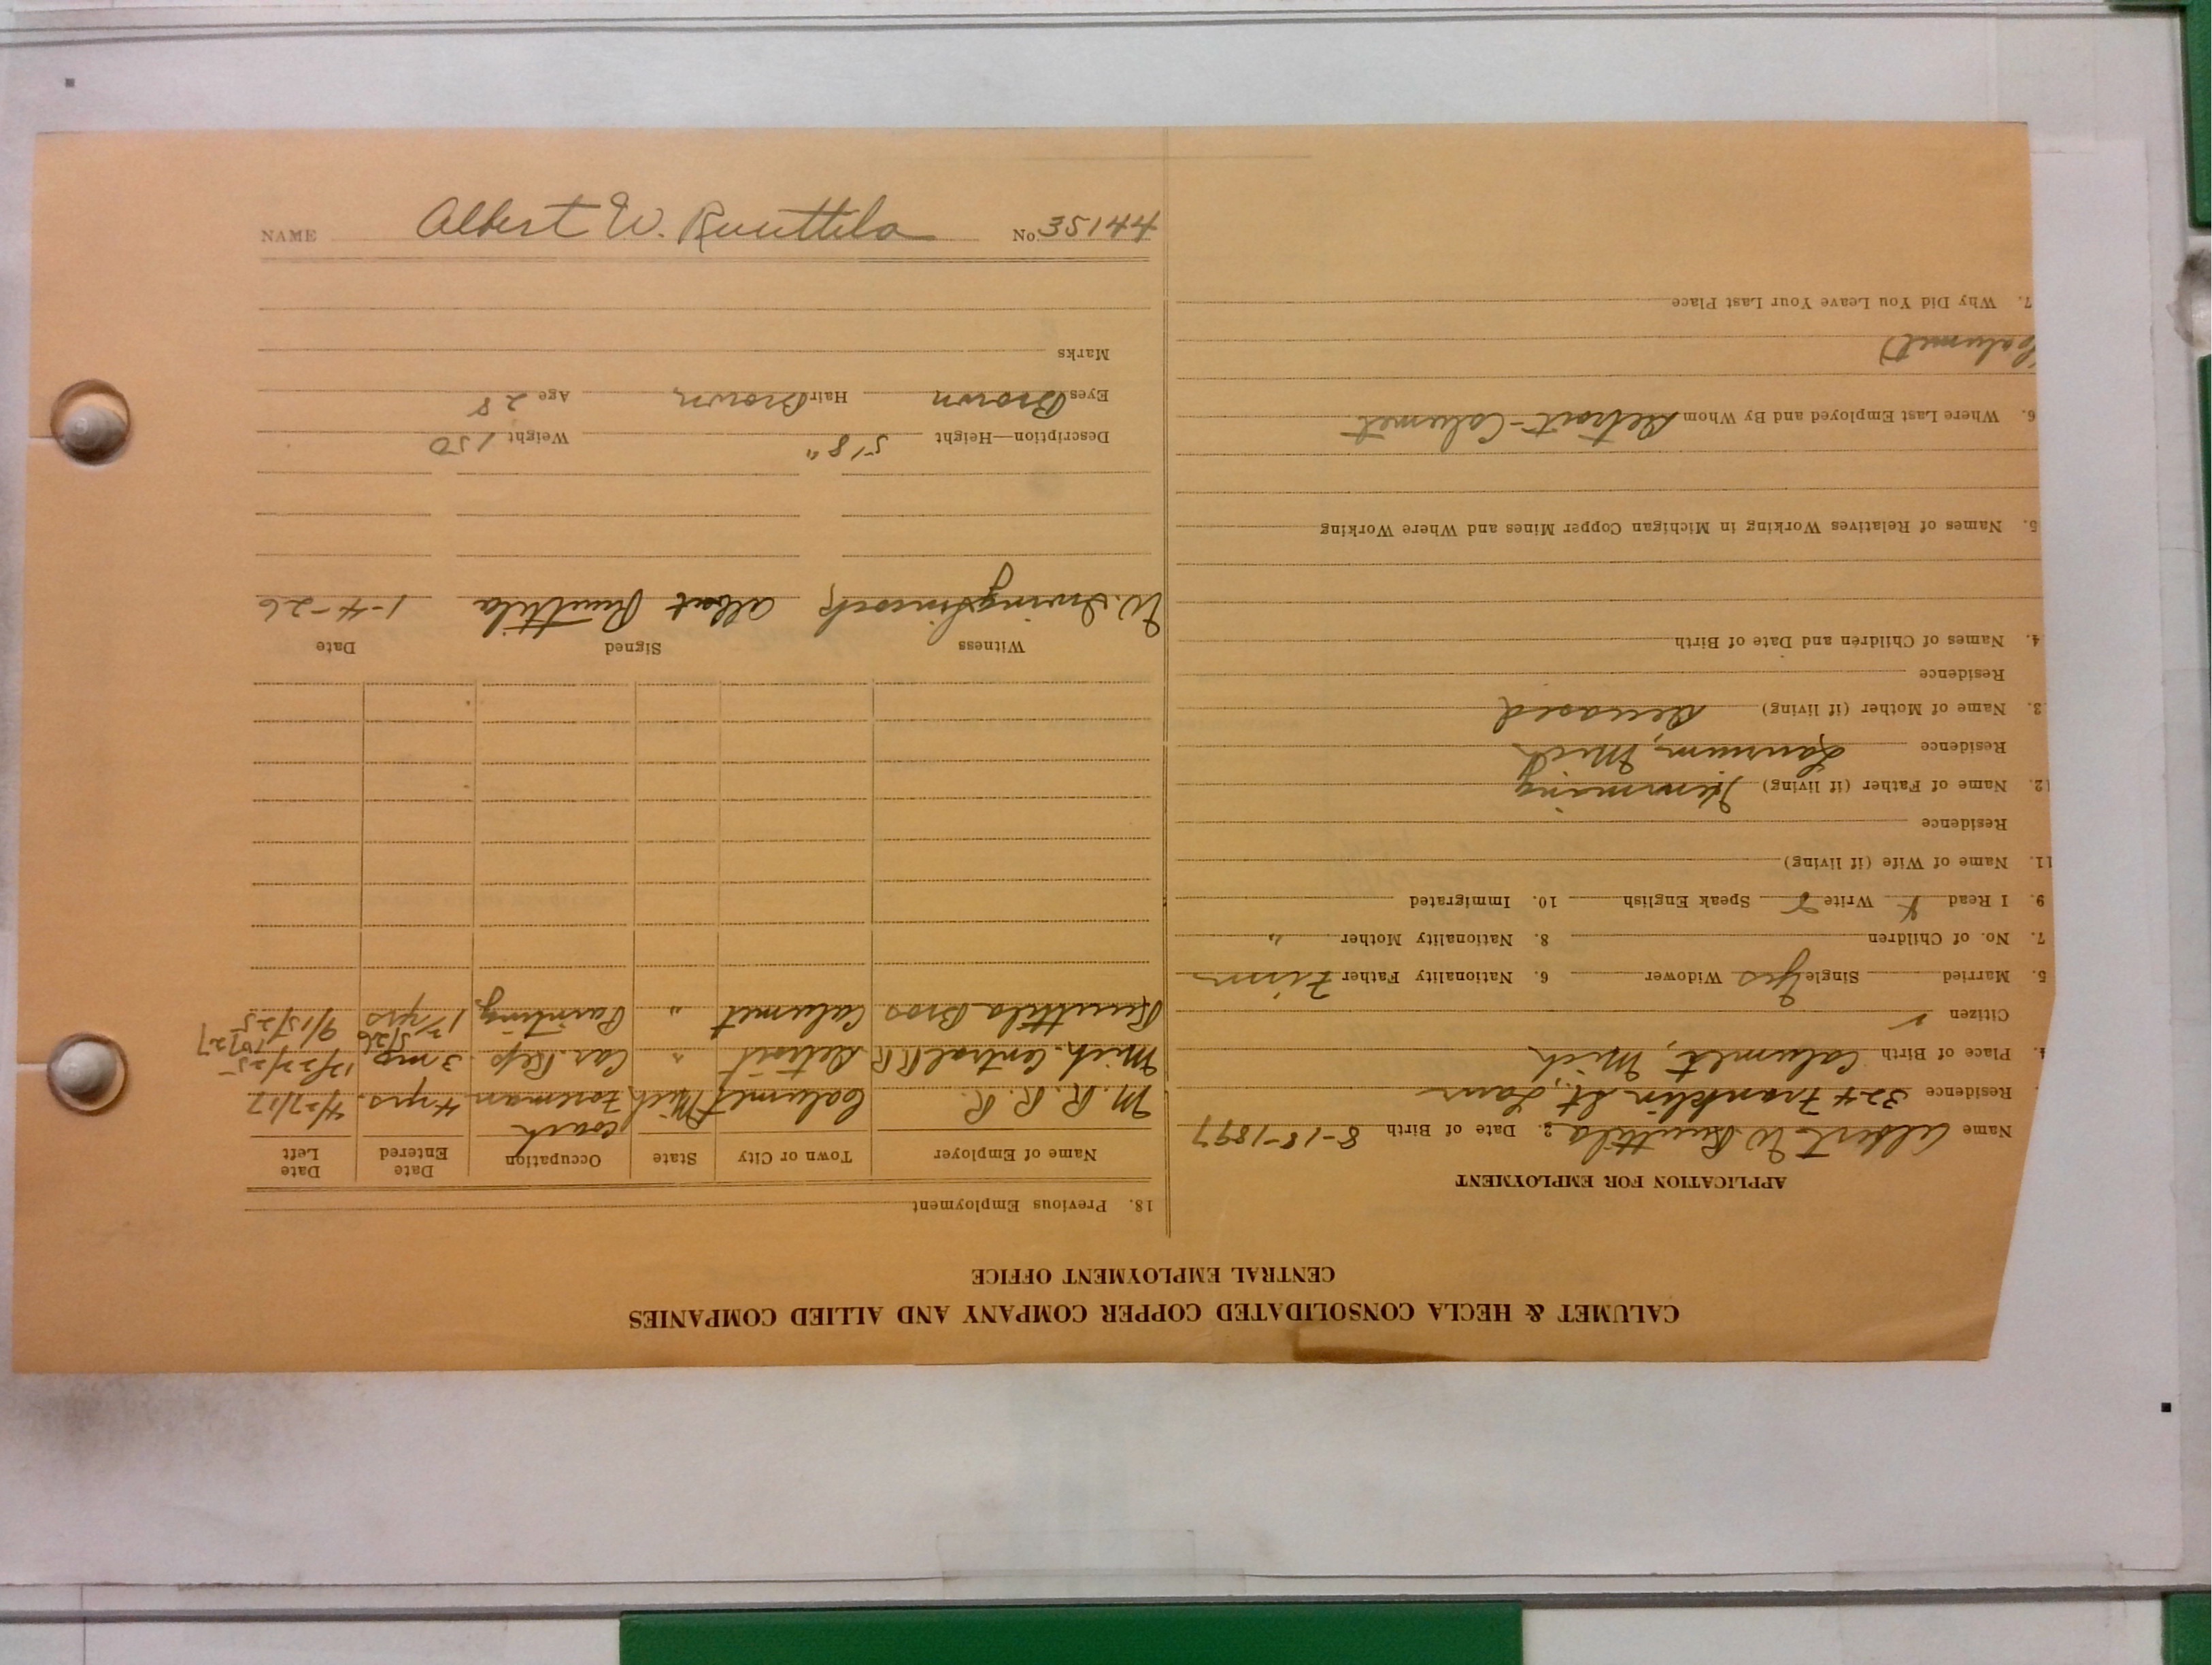 CALUMET & HECLA CONSOLIDATED COPPER COMPANY AND ALLIED COMPANIES
CENTRAL EMPLOYMENT OFFICE
APPLICATION FOR EMPLOYMENT
Name Albert W Ruuttila 2. Date of Birth 8-18-1897
Residence 324 Franklin St, Laur
4. Place of Birth Calumet, Mich
Citizen ✓
5. Married Single yes Widower 6. Nationality Father Finn
7. No. of Children 8. Nationality Mother "
9. I Read Write Speak English 10. Immigrated
11. Name of Wife (if living)
Residence
12. Name of Father (if living) Hemming
Residence Laurium, Mich
13. Name of Mother (if living) Deceased
Residence
14. Names of Children and Date of Birth
5. Names of Relatives Working in Michigan Copper Mines and Where Working
6. Where Last Employed and By Whom Detroit - Calumet
Calumet)
7. Why Did You Leave Your Last Place
18. Previous Employment
Name of Employer Town or City State Occupation Date Entered Date Left
M. R. R. R. Calumet Mich Coach Foreman 4 yrs. 4/27/17
Mich. Central RR Detroit " Car. Rep. 3 mo 12/22/25
5/26 10/27
Ruuttila Bros Calumet " Painting 1 1/2 yrs 9/15/25
Witness Signed Date
W. Irving Albert Ruuttila 1-4-26
Description—Height 5'8" Weight 150
Eyes Brown Hair Brown Age 28
Marks
NAME Albert W. Ruuttila No. 35144